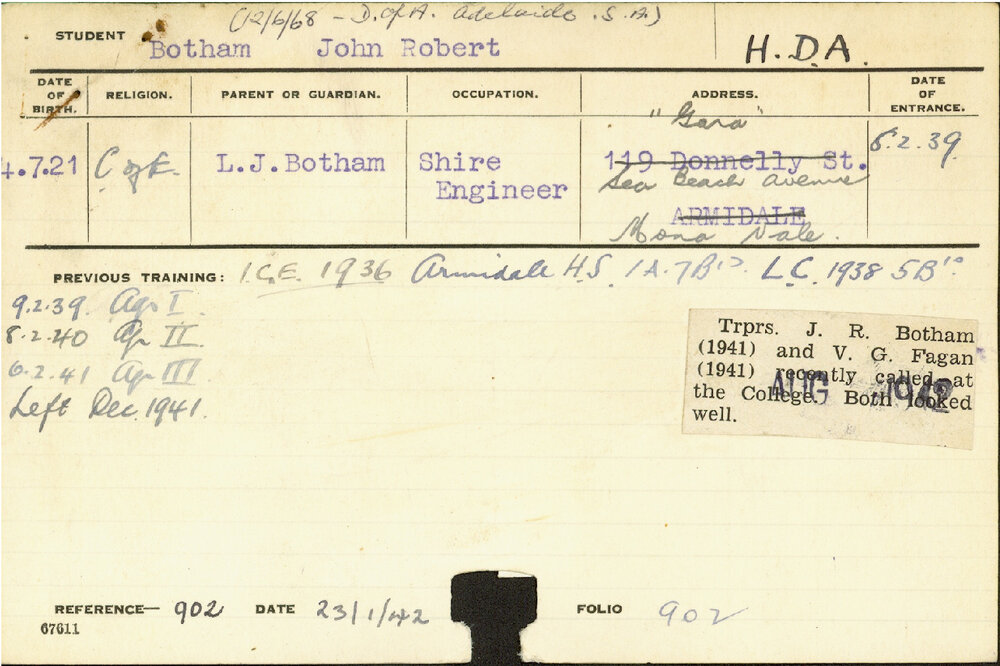 (12/6/68 - D. of A. Adelaide. S.A.)
STUDENT Botham John Robert H.D.A.
DATE OF BIRTH. RELIGION. PARENT OR GUARDIAN. OCCUPATION. ADDRESS. DATE OF ENTRANCE.
"Gara"
4.7.21 C of E. L.J.Botham Shire Engineer 119 Donnelly St. 8.2.39
Sea Beach Avenue
ARMIDALE
Mona Vale.
PREVIOUS TRAINING: I.C.E. 1936 Armidale H.S. 1A.7B's. L.C. 1938 5B's
9.2.39. Ag I
8.2.40 Ag II.
6.2.41 Ag III.
Left Dec. 1941.
Trprs. J. R. Botham
(1941) and V. G. Fagan
(1941) recently called at
the College. Both looked
well.
AUG 1942
REFERENCE— 902 DATE 23/1/42 FOLIO 902
67611